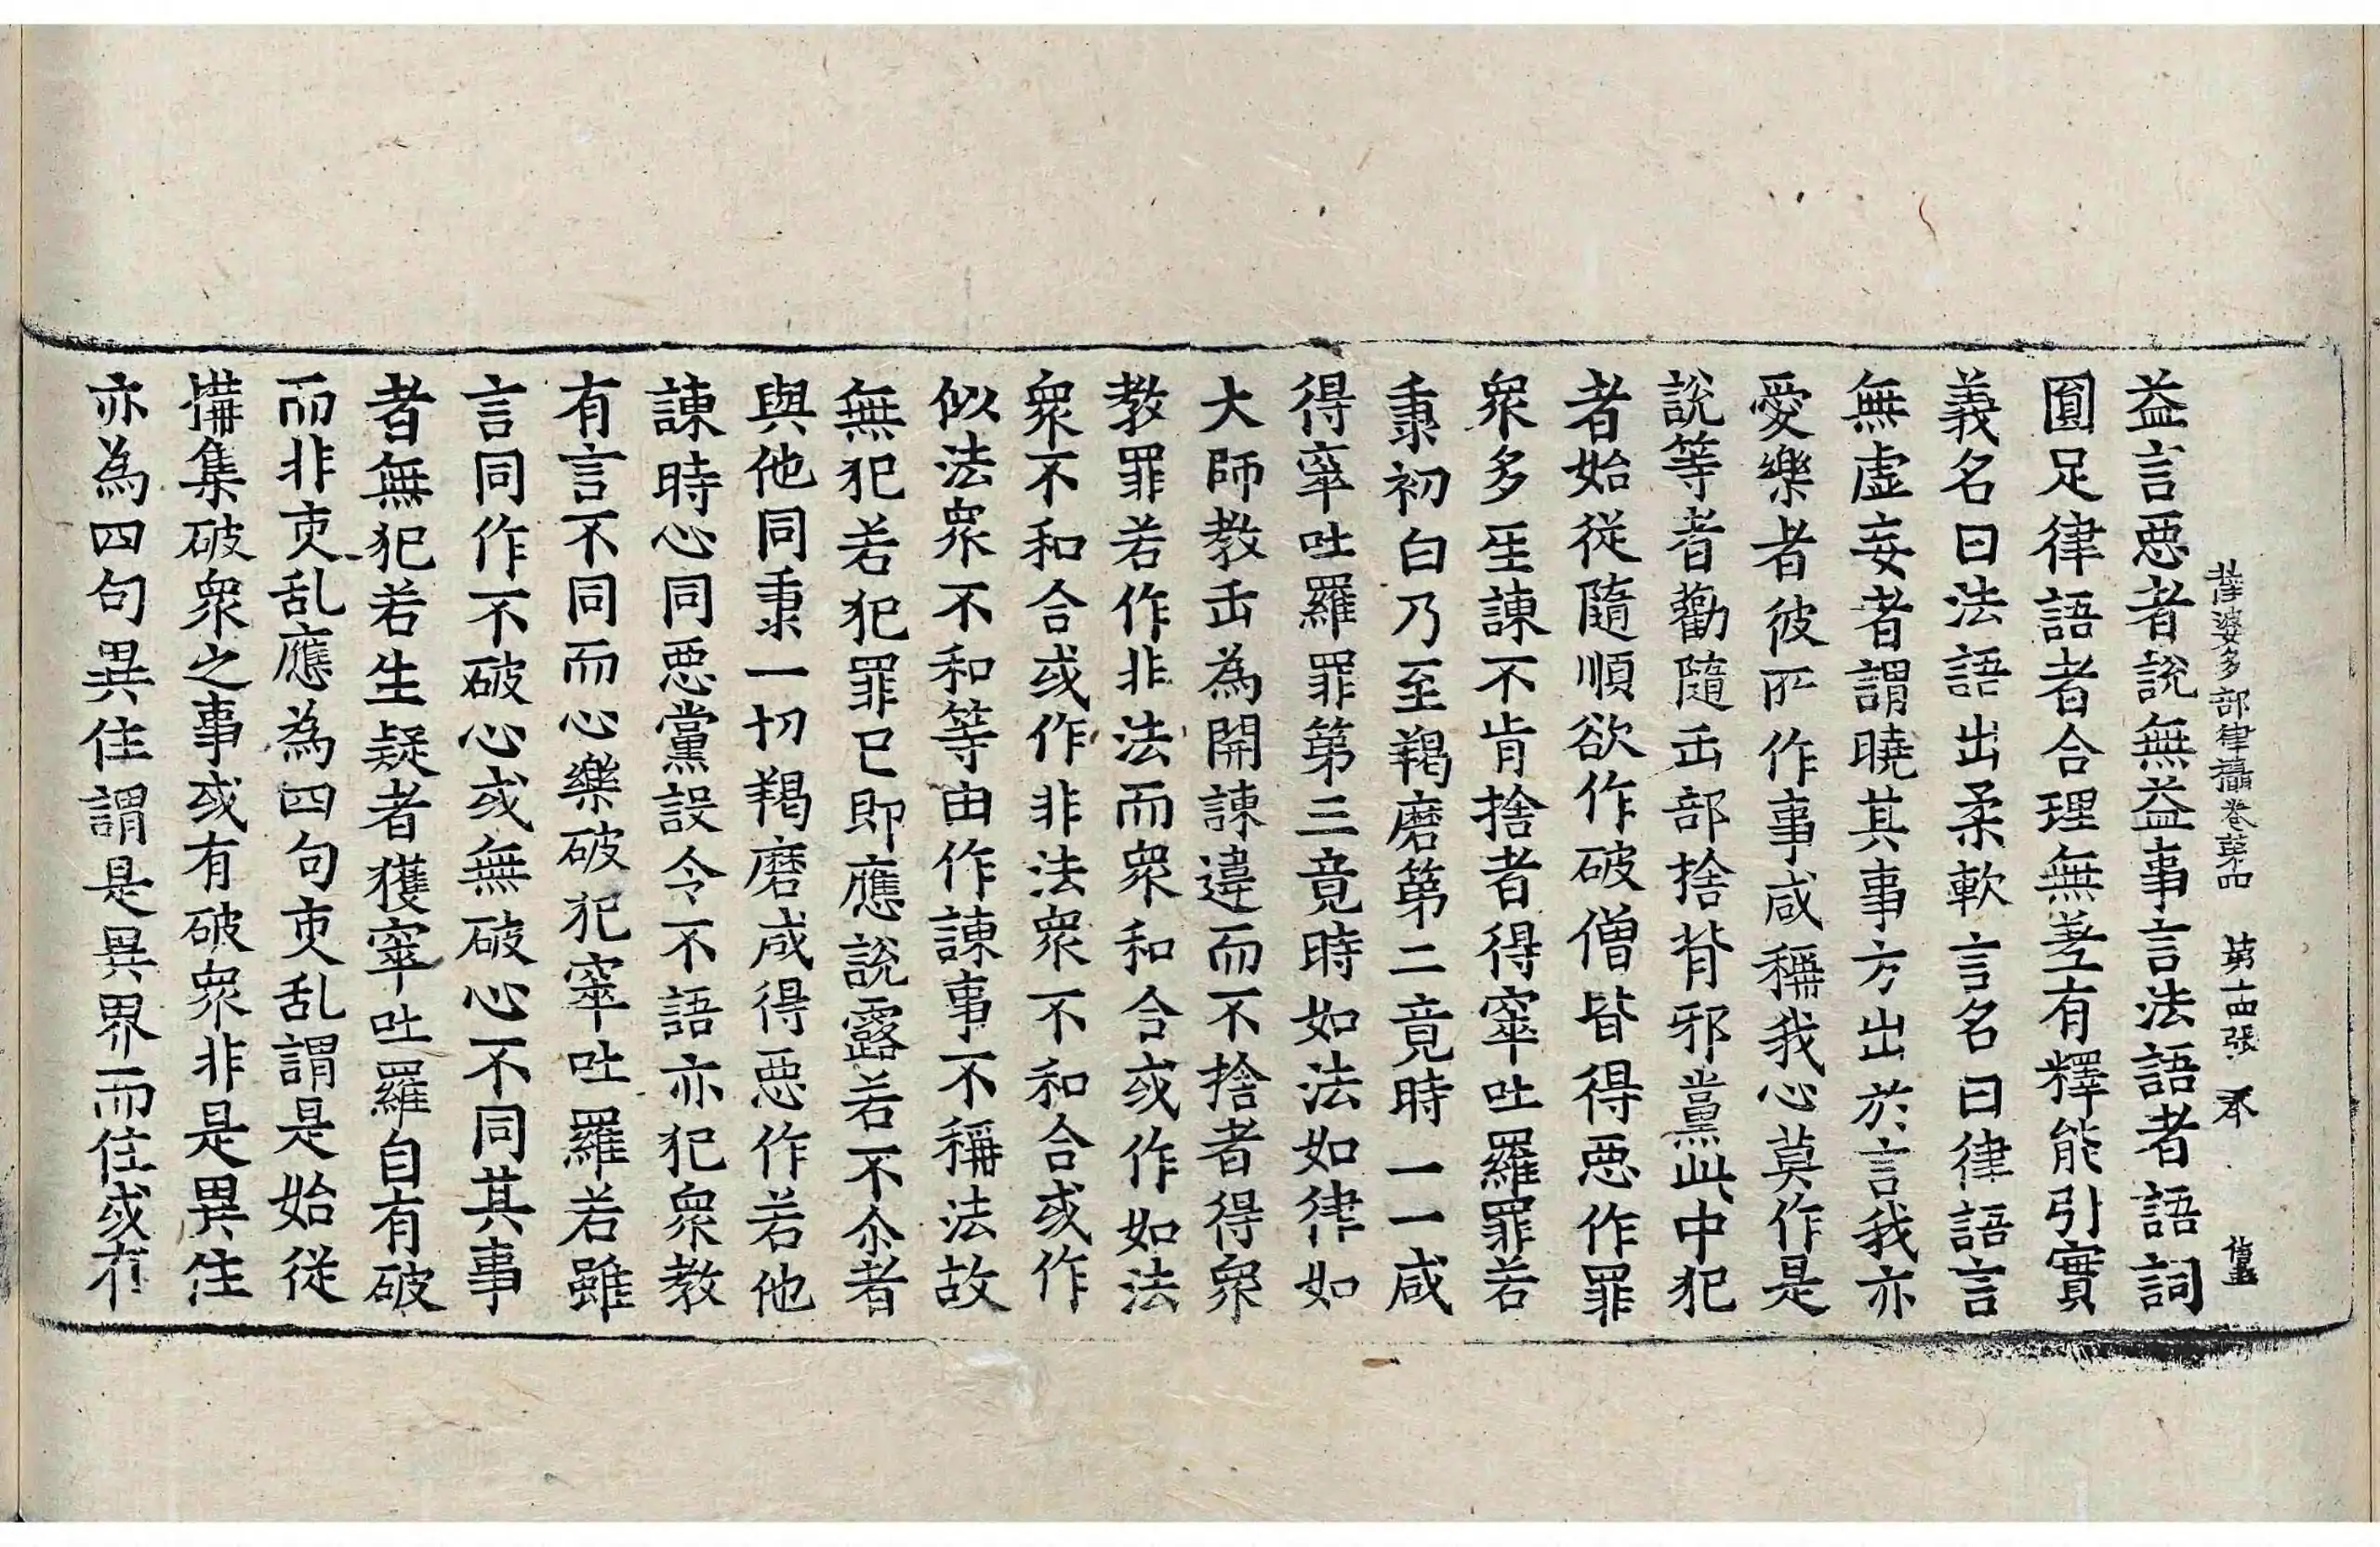 薩婆多部律攝卷第四　第十四張　禾
益言惡者說無益事言法語者語詞
圓足律語者合理無差有釋能引實
義名曰法語出柔軟言名曰律語言
無虛妄者謂曉其事方出於言我亦
愛樂者彼所作事咸稱我心莫作是
說等者勸隨正部捨背邪黨此中犯
者始從隨順欲作破僧皆得惡作罪
衆多苾諫不肯捨者得窣吐羅罪若
秉初白乃至羯磨第二竟時一一咸
得窣吐羅罪第三竟時如法如律如
大師教正為開諫違而不捨者得衆
教罪若作非法而衆和合或作如法
衆不和合或作非法衆不和合或作
似法衆不和等由作諫事不稱法故
無犯若犯罪已即應說露若不尒者
與他同秉一切羯磨咸得惡作若他
諫時心同惡黨設令不語亦犯衆教
有言不同而心樂破犯窣吐羅若雖
言同作不破心或無破心不同其事
者無犯若生疑者獲窣吐羅自有破
而非吏乱應為四句吏乱謂是始從
搆集破衆之事或有破衆非是異住
亦為四句異住謂是異界而住或有